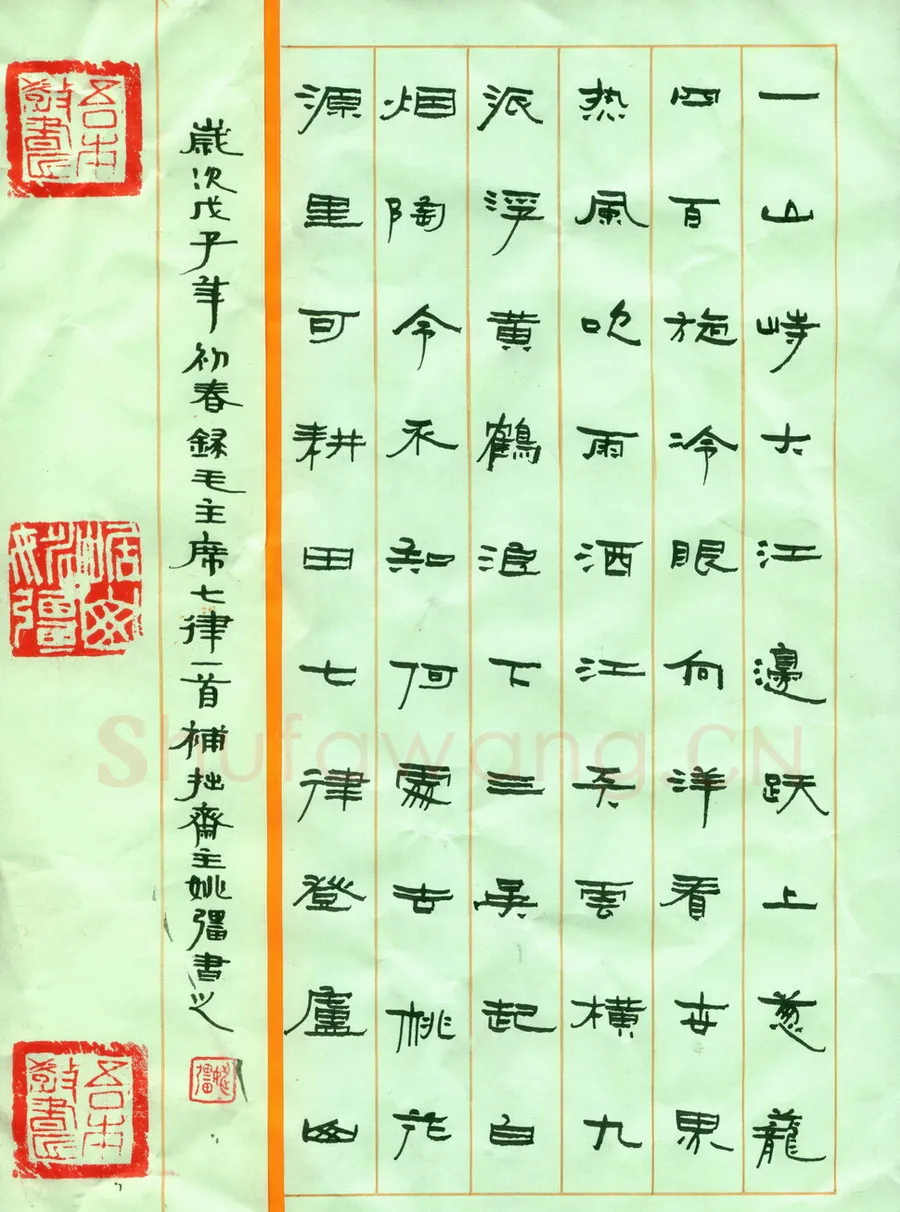 一山峙大江邊跃上葱蘢
四百旋冷眼向洋看世界
热風吹雨洒江天雲橫九
派浮黄鶴浪下三吳起白
烟陶令不知何處去桃花
源里可耕田七律登廬山
歲次戊子年初春録毛主席七律一首補拙齋主姚彊書之
吾本教書匠
姚彊
吾本教書匠
Shufawang.CN